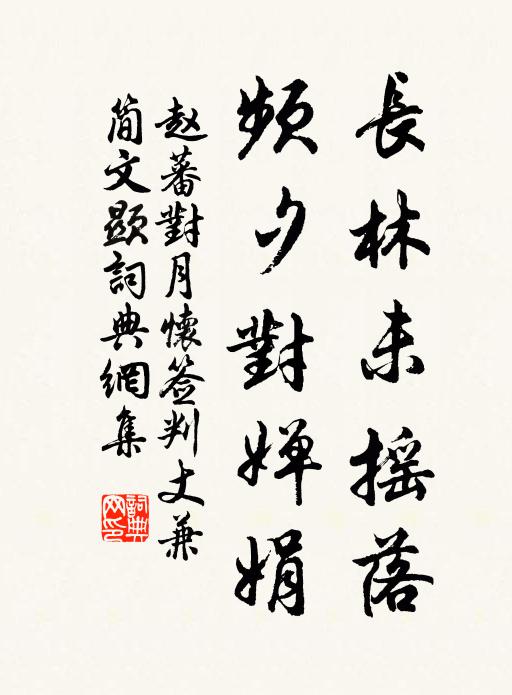 長林未摇落
頻夕對嬋娟
赵蕃對月懷签判丈兼
简文顯詞典網集
詞典
网印